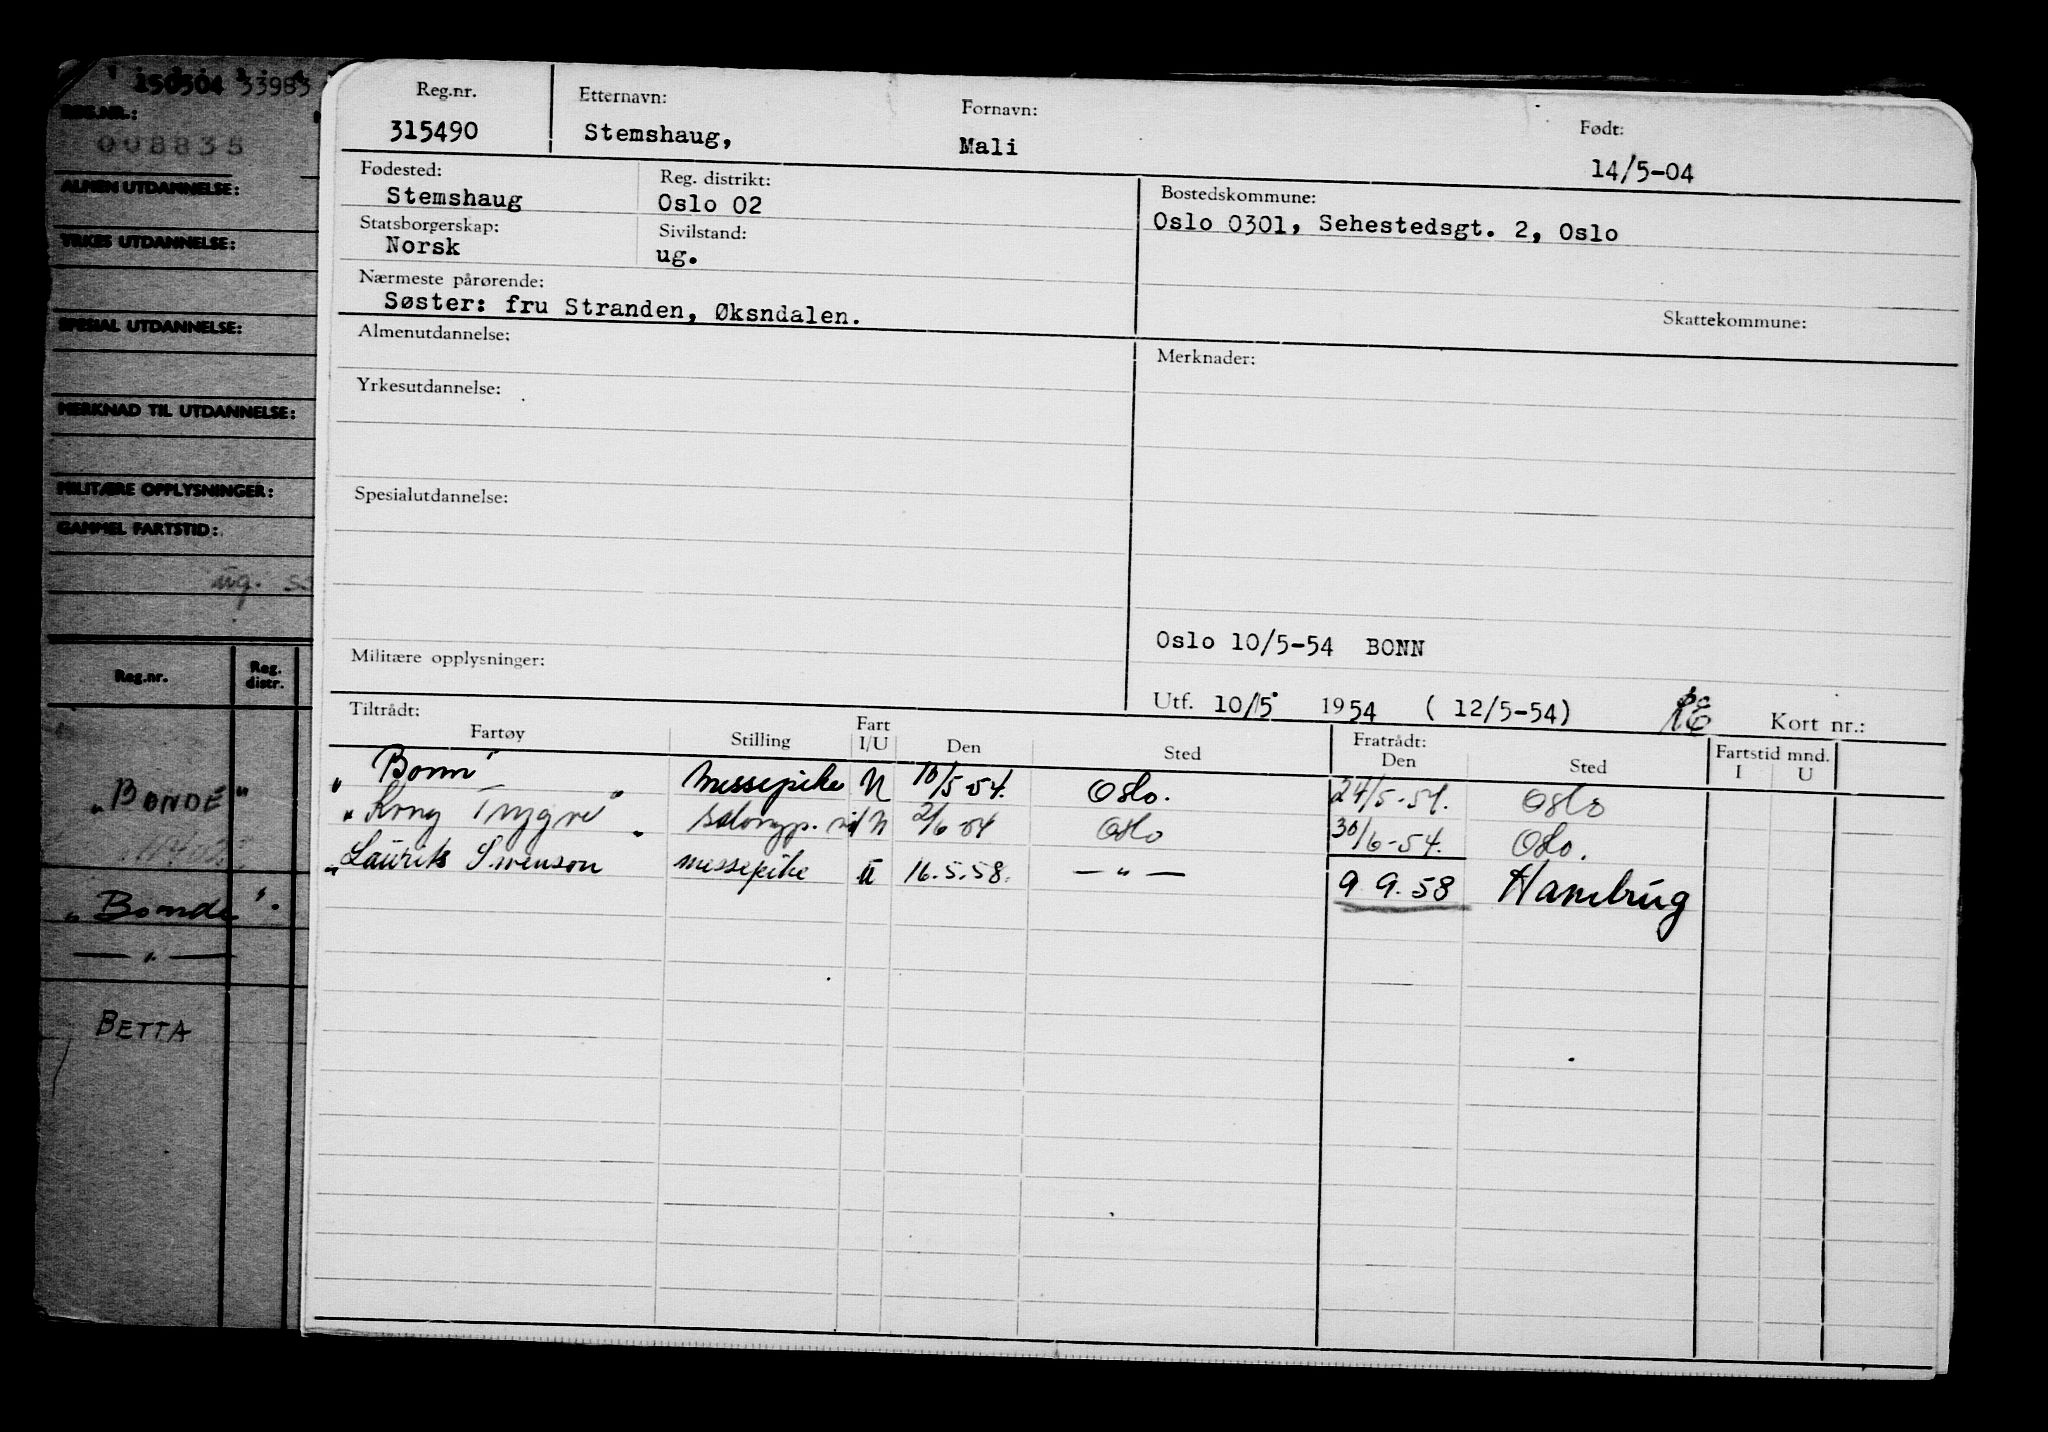 150504 33983
REG.NR.:
008835
ALMEN UTDANNELSE:
YRKES UTDANNELSE:
SPESIAL UTDANNELSE:
MERKNAD TIL UTDANNELSE:
MILITÆRE OPPLYSNINGER:
GAMMEL FARTSTID:
ug.
Reg.nr. Reg. distr.
"BONDE"
"Bonde".
— " —
BETTA
Reg.nr. Etternavn: Fornavn: Født:
315490 Stemshaug, Mali 14/5-04
Fødested: Reg. distrikt: Bostedskommune:
Stemshaug Oslo 02 Oslo 0301, Sehestedsgt. 2, Oslo
Statsborgerskap: Sivilstand:
Norsk ug.
Nærmeste pårørende:
Søster: fru Stranden, Øksndalen.
Skattekommune:
Almenutdannelse: Merknader:
Yrkesutdannelse:
Spesialutdannelse:
Oslo 10/5-54 BONN
Militære opplysninger:
Utf. 10/5 1954 ( 12/5-54) Kort nr.:
Tiltrådt: Fratrådt:
Fartøy Stilling Fart I/U Den Sted Den Sted Fartstid mnd. I U
"Bonn" Messepike U 10/5-54. Oslo. 24/5-54. Oslo
"Kong Trygve" U 2/6-54 Oslo 30/6-54. Oslo.
"Laurits Swenson" messepike U 16.5.58. — " — 9.9.58 Hambrug